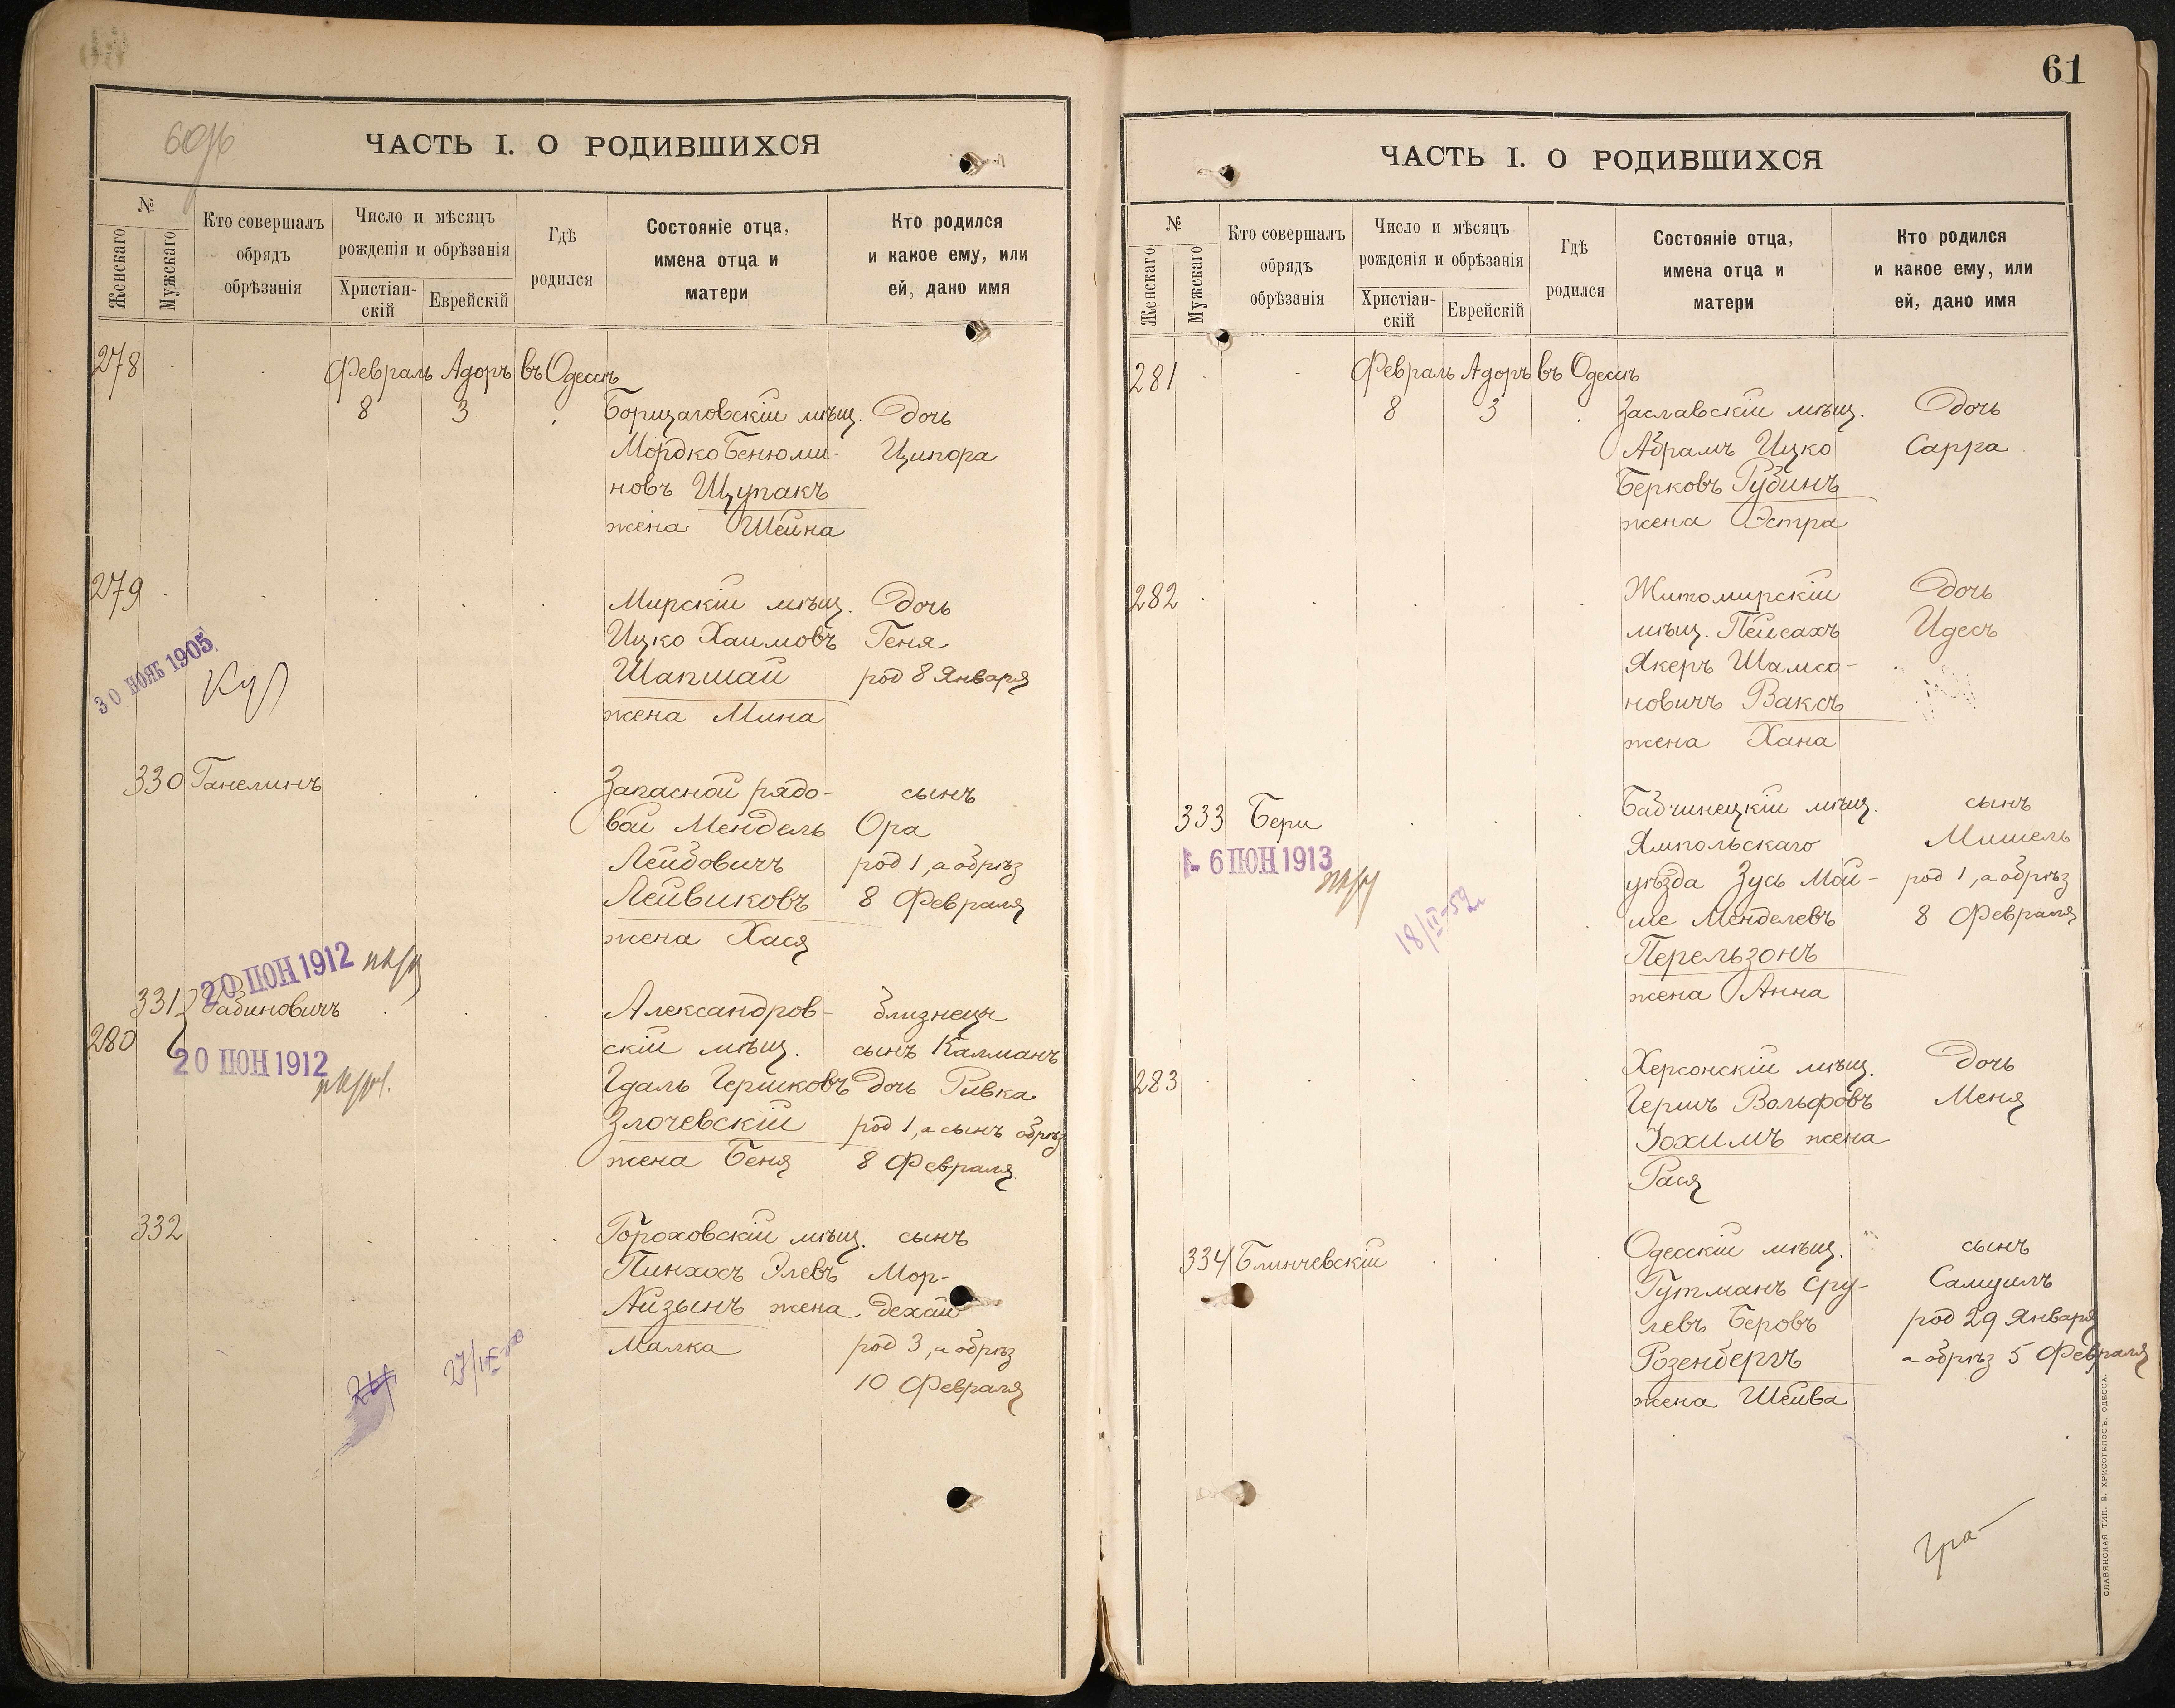 ЧАСТЬ I. О РОДИВШИХСЯ
№
Женскаго
Мужскаго
Кто совершалъ
обрядъ
обрѣзанія
Число и мѣсяцъ
рожденія и обрѣзанія
Христіан-
скій
Еврейскій
Гдѣ
родился
Состояніе отца,
имена отца и
матери
Кто родился
и какое ему, или
ей, дано имя
278
Февраль Адоръ въ Одессѣ
8 3 мѣщ. дочь
Мордко Бенюми- Ципора
новъ Щупакъ
жена Шейна
279
Мирскій мѣщ. дочь
Ицко Хаимовъ Геня
Шапшай род 8 Января
жена Мина
30 НОЯБ 1905
330 Ганелинъ Запасной рядо- сынъ
вой Мендель Ора
Лейбовичъ род 1, а обрѣз
Лейвиковъ 8 Февраля
жена Хася
20 ІЮН 1912
331 Рабиновичъ Александров- близнецы
280 скій мѣщ. сынъ Калманъ
20 ІЮН 1912
Гдаль Гершковъ дочь Ривка
Злочевскій род 1, а сынъ обрѣз
жена Беня 8 Февраля
332 Гороховскій мѣщ. сынъ
Пинхосъ Элевъ Мор-
Айзынъ жена дехай
Малка род 3, а обрѣз
10 Февраля
61
ЧАСТЬ I. О РОДИВШИХСЯ
№
Женскаго
Мужскаго
Кто совершалъ
обрядъ
обрѣзанія
Число и мѣсяцъ
рожденія и обрѣзанія
Христіан-
скій
Еврейскій
Гдѣ
родился
Состояніе отца,
имена отца и
матери
Кто родился
и какое ему, или
ей, дано имя
281
Февраль Адоръ въ Одессѣ
8 3 Заславскій мѣщ. дочь
Абрамъ Ицко Сарра
Берковъ Рубинъ
жена Эстра
282 Житомирскій дочь
мѣщ. Пейсахъ Идесъ
Якеръ Шамсо-
новичъ Ваксъ
жена Хана
333 Бери Бабчинецкій мѣщ. сынъ
Ямпольскаго Мишель
6 ІЮН 1913
уѣзда Зусь Мой- род 1, а обрѣз
ше Менделевъ 8 Февраля
18/II-52
Перельзонъ
жена Анна
283 Херсонскій мѣщ. дочь
Гершъ Вольфовъ Меня
Іохимъ жена
Рася
334 Блинчевскій Одесскій мѣщ. сынъ
Гутманъ Сру- Самуилъ
левъ Беровъ род 29 Января
Розенбергъ а обрѣз 5 Февраля
жена Шейва
СЛАВЯНСКАЯ ТИП. Е. ХРИСОГЕЛОСЪ, ОДЕССА.